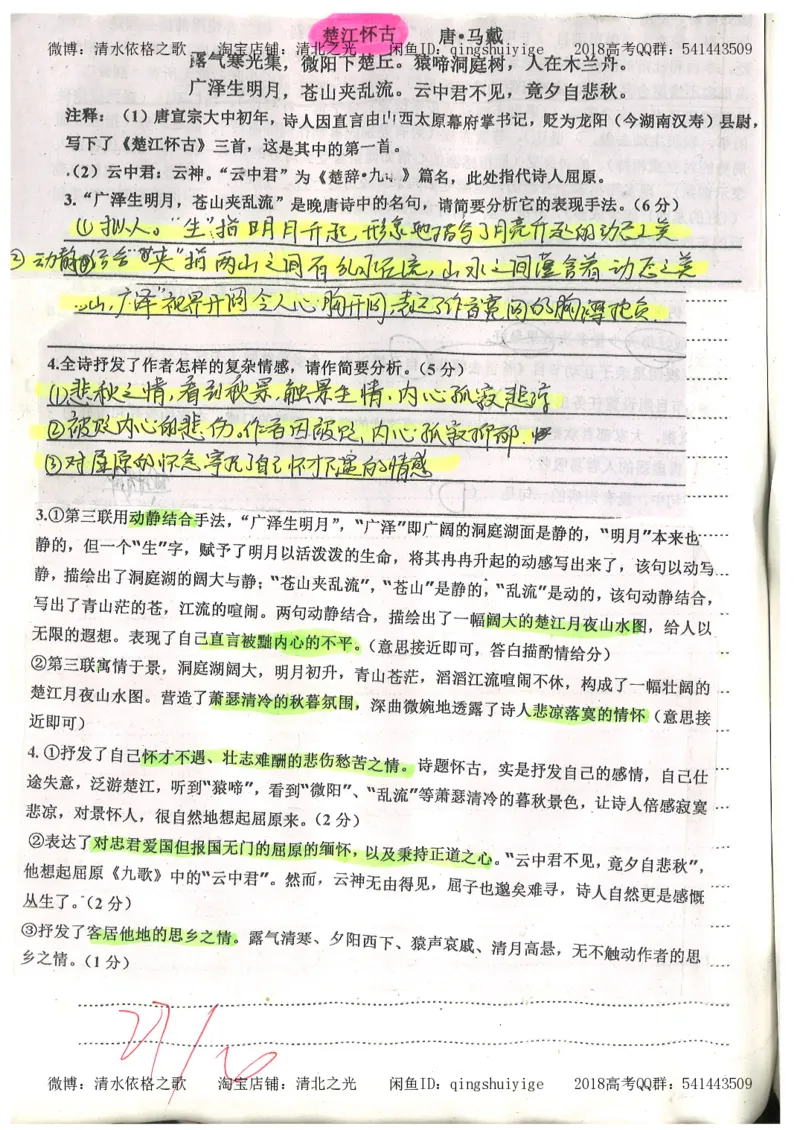 楚江怀古 唐·马戴
微博：清水依格之歌 淘宝店铺：清北之光 闲鱼ID：qingshuiyige 2018高考QQ群：541443509
露气寒光集，微阳下楚丘。猿啼洞庭树，人在木兰舟。
广泽生明月，苍山夹乱流。云中君不见，竟夕自悲秋。
注释：（1）唐宣宗大中初年，诗人因直言由山西太原幕府掌书记，贬为龙阳（今湖南汉寿）县尉，
写下了《楚江怀古》三首，这是其中的第一首。
.（2）云中君：云神。“云中君”为《楚辞·九 》篇名，此处指代诗人屈原。
3.“广泽生明月，苍山夹乱流”是晚唐诗中的名句，请简要分析它的表现手法。（6分）
①拟人。“生”指明月升起，形象地描写了月亮升起的动态之美
②动静结合“夹”指两山之间有乱水石流，山水之间蕴含着动态之美
山，广泽”视界开阔令人心胸开阔，表达了作者宽阔的胸襟抱负。
4.全诗抒发了作者怎样的复杂情感，请作简要分析。（5分）
①悲秋之情，看到秋景，触景生情，内心孤寂悲凉
②被贬内心的悲伤。作者因被贬，内心孤寂抑郁
③对屈原的怀念寄托了自己怀才不遇的情感
3.①第三联用动静结合手法，“广泽生明月”，“广泽”即广阔的洞庭湖面是静的，“明月”本来也
静的，但一个“生”字，赋予了明月以活泼泼的生命，将其冉冉升起的动感写出来了，该句以动写
静，描绘出了洞庭湖的阔大与静；“苍山夹乱流”，“苍山”是静的，“乱流”是动的，该句动静结合，
写出了青山茫的苍，江流的喧闹。两句动静结合，描绘出了一幅阔大的楚江月夜山水图，给人以
无限的遐想。表现了自己直言被黜内心的不平。（意思接近即可，答白描酌情给分）
②第三联寓情于景，洞庭湖阔大，明月初升，青山苍茫，滔滔江流喧闹不休，构成了一幅壮阔的
楚江月夜山水图。营造了萧瑟清冷的秋暮氛围，深曲微婉地透露了诗人悲凉落寞的情怀（意思接
近即可）
4.①抒发了自己怀才不遇、壮志难酬的悲伤愁苦之情。诗题怀古，实是抒发自己的感情，自己仕
途失意，泛游楚江，听到“猿啼”，看到“微阳”、“乱流”等萧瑟清冷的暮秋景色，让诗人倍感寂寞
悲凉，对景怀人，很自然地想起屈原来。（2分）
②表达了对忠君爱国但报国无门的屈原的缅怀，以及秉持正道之心。“云中君不见，竟夕自悲秋”，
他想起屈原《九歌》中的“云中君”。然而，云神无由得见，屈子也邈矣难寻，诗人自然更是感慨
丛生了。（2分）
③抒发了客居他地的思乡之情。露气清寒、夕阳西下、猿声哀戚、清月高悬，无不触动作者的思
乡之情。（1分）
微博：清水依格之歌 淘宝店铺：清北之光 闲鱼ID：qingshuiyige 2018高考QQ群：541443509